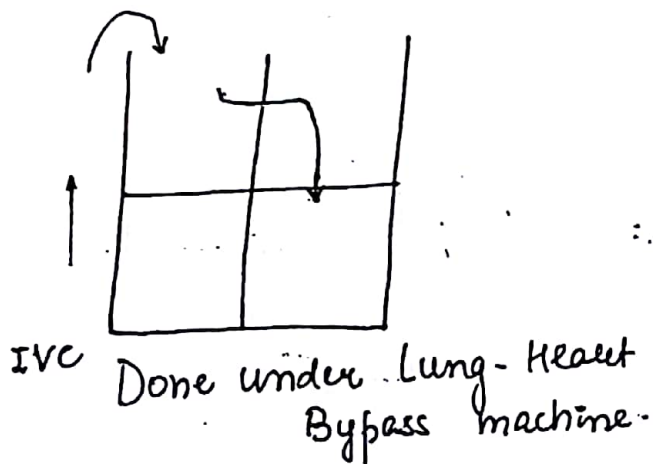 IVC
Done under Lung-Heart
Bypass machine.